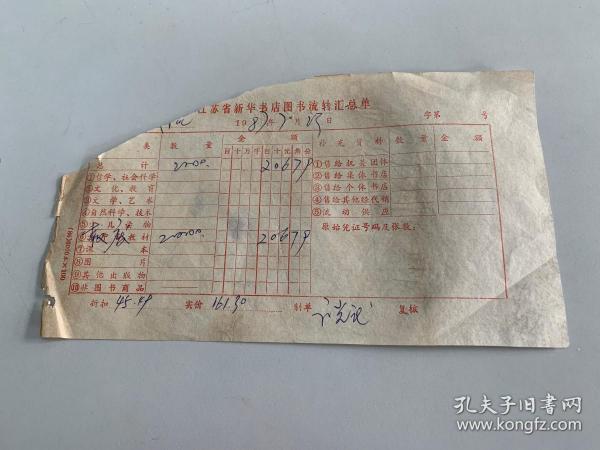 江苏省新华书店图书流转汇总单
198 年 月 日 字第 号
类 数量 金额 补充资料 数量 金额
百十万千百十元角分
总计 20679 ①售给机关团体
①哲学、社会科学 ②售给集体书店
②文化、教育 ③售给个体书店
③文学、艺术 ④售给其他经代销
④自然科学、技术 ⑤流动供应
⑤少儿读物 原始凭证号码及张数:
教材 20679
⑦课本
⑧图片
⑨其他出版物
⑩非图书商品
折扣 45.49 实价 161.30 制单 复核
孔夫子旧书网
www.kongfz.com